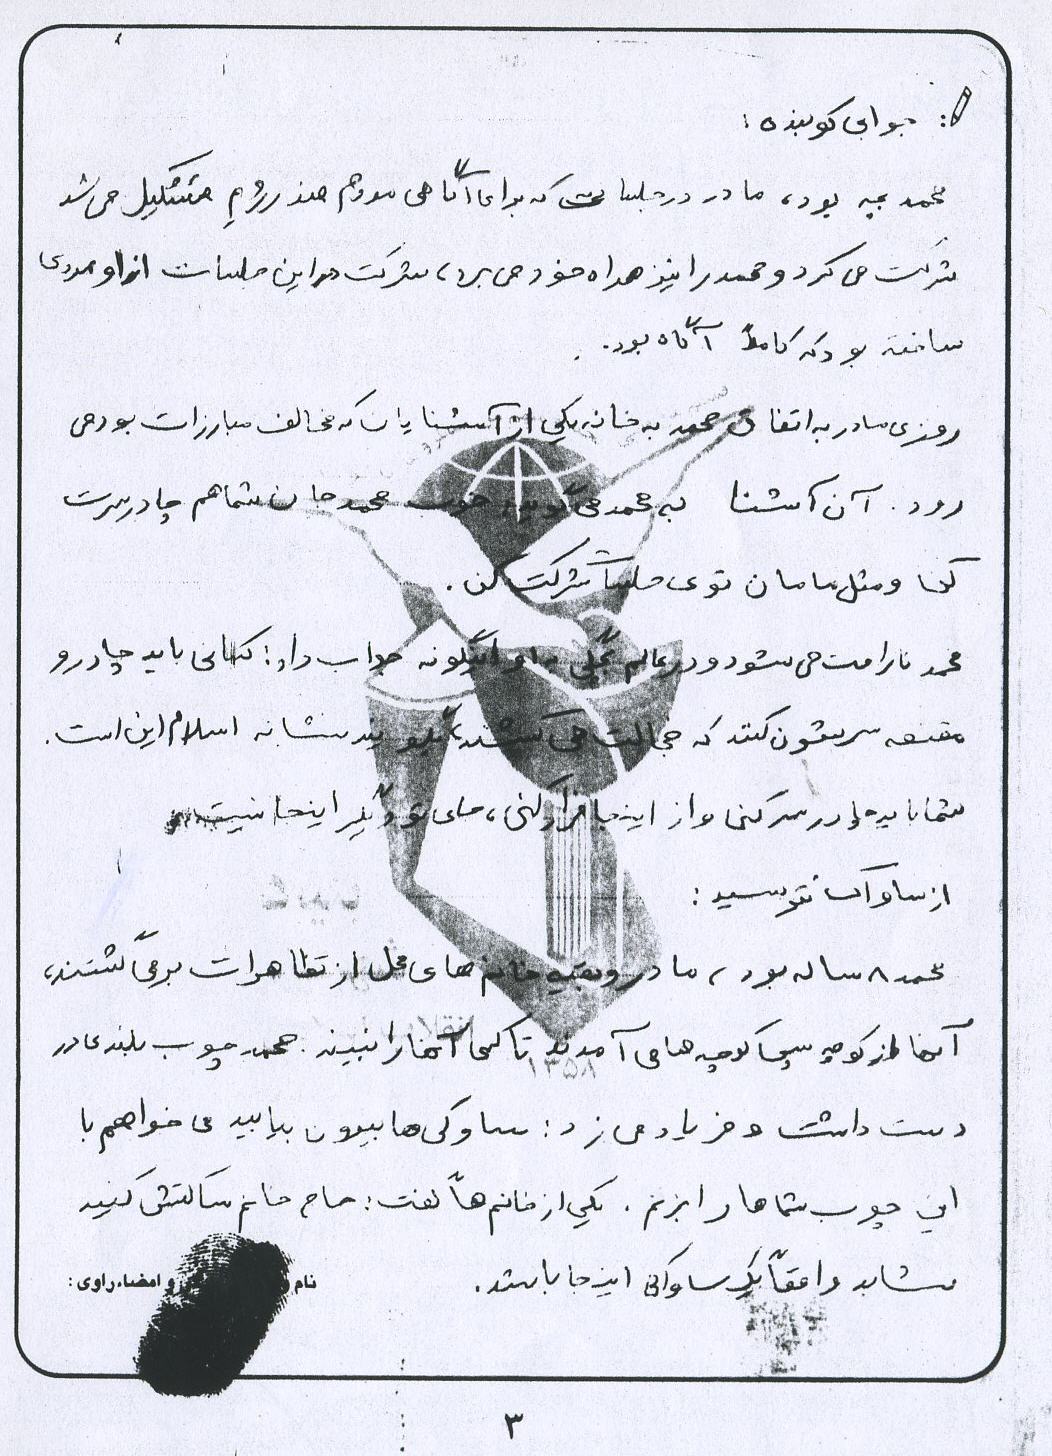 جوابی کوبنده :
محمد بچه بود، مادر در جلساتی که برای آگاهی مردم ضد رژیم تشکیل می شد
شرکت می کرد و محمد را نیز همراه خود می برد، شرکت در این جلسات از او مردی
ساخته بود که کاملاً آگاه بود.
روزی مادر به اتفاق محمد به خانه یکی از آشنایان که مخالف مبارزات بود می
رود. آن آشنا به محمد می گوید: خوب محمد جان شما هم چادر سرت
کن و مثل مامان توی جلسات شرکت کن.
محمد ناراحت می شود و در عالم بچگی به او اینگونه جواب داد: کسانی باید چادر و
مقنعه سرشون کنند که خجالت می کشند بگویند نشانه اسلام این است.
شما باید چادر سر کنی و از اینجا فرار کنی، جای تو دیگر اینجا نیست
از ساواک نترسید :
محمد ۸ ساله بود، مادر و بقیه خانم های محل از تظاهرات برمی گشتند،
آنها از کوچه پس کوچه ها می آمدند تا کسی آنها را نبیند. محمد چوب بلندی در
دست داشت و فریاد می زد: ساواکی ها بیرون بیایید می خواهم با
این چوب شماها را بزنم. یکی از خانم ها گفت: حاج خانم ساکتش کنید
شاید واقعاً یک ساواکی اینجا باشد.
نام و و امضاء راوی :
۱۳۵۸
۳